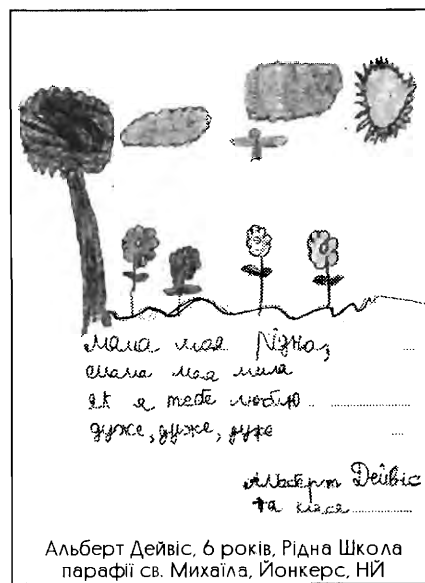 мама моя Рідна,
мама моя мила
як я тебе люблю
дуже, дуже, дуже
Альберт Дейвіс
та класа
Альберт Дейвіс, 6 років, Рідна Школа
парафії св. Михаїла, Йонкерс, НЙ